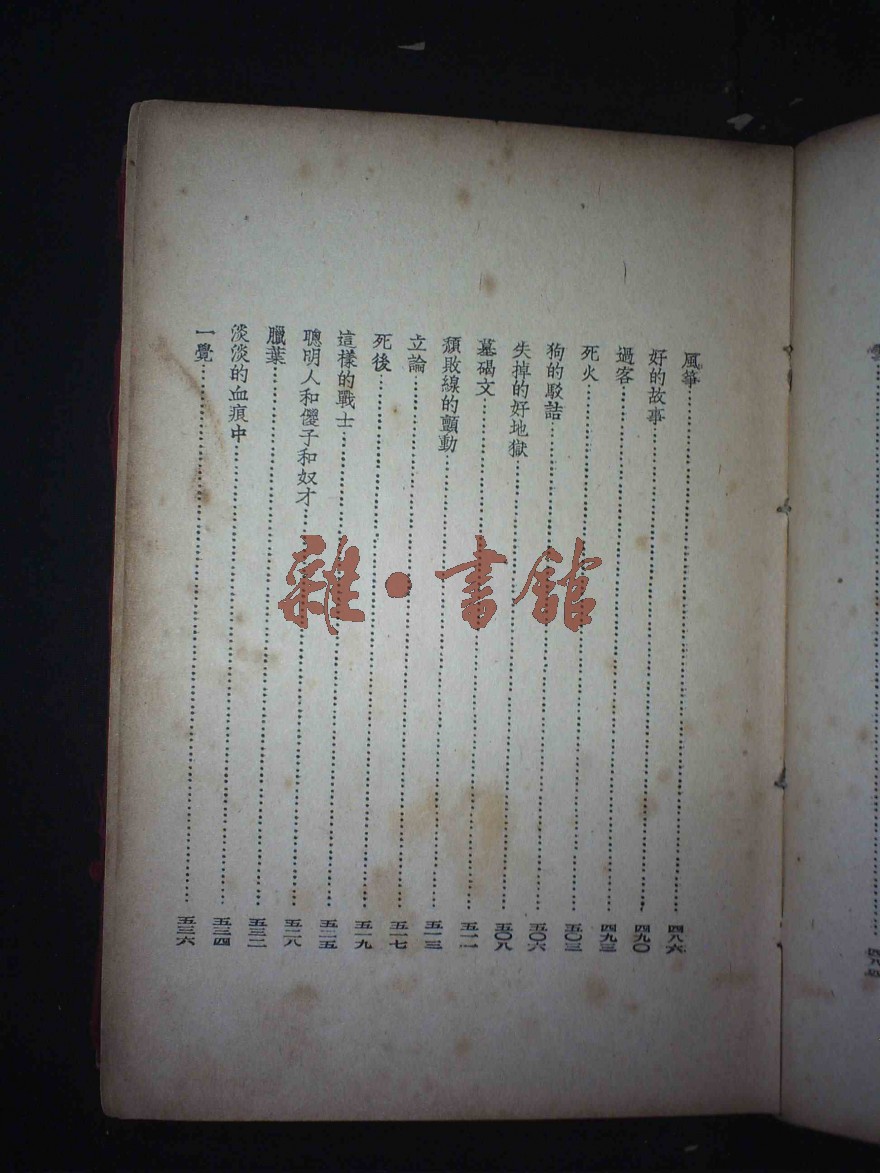 風箏……四八六
好的故事……四九〇
過客……四九三
死火……五〇三
狗的駁詰……五〇六
失掉的好地獄……五〇八
墓碣文……五一一
頹敗線的顫動……五一三
立論……五一七
死後……五一九
這樣的戰士……五二五
聰明人和儍子和奴才……五二八
臘葉……五三二
淡淡的血痕中……五三四
一覺……五三六
雜·書館